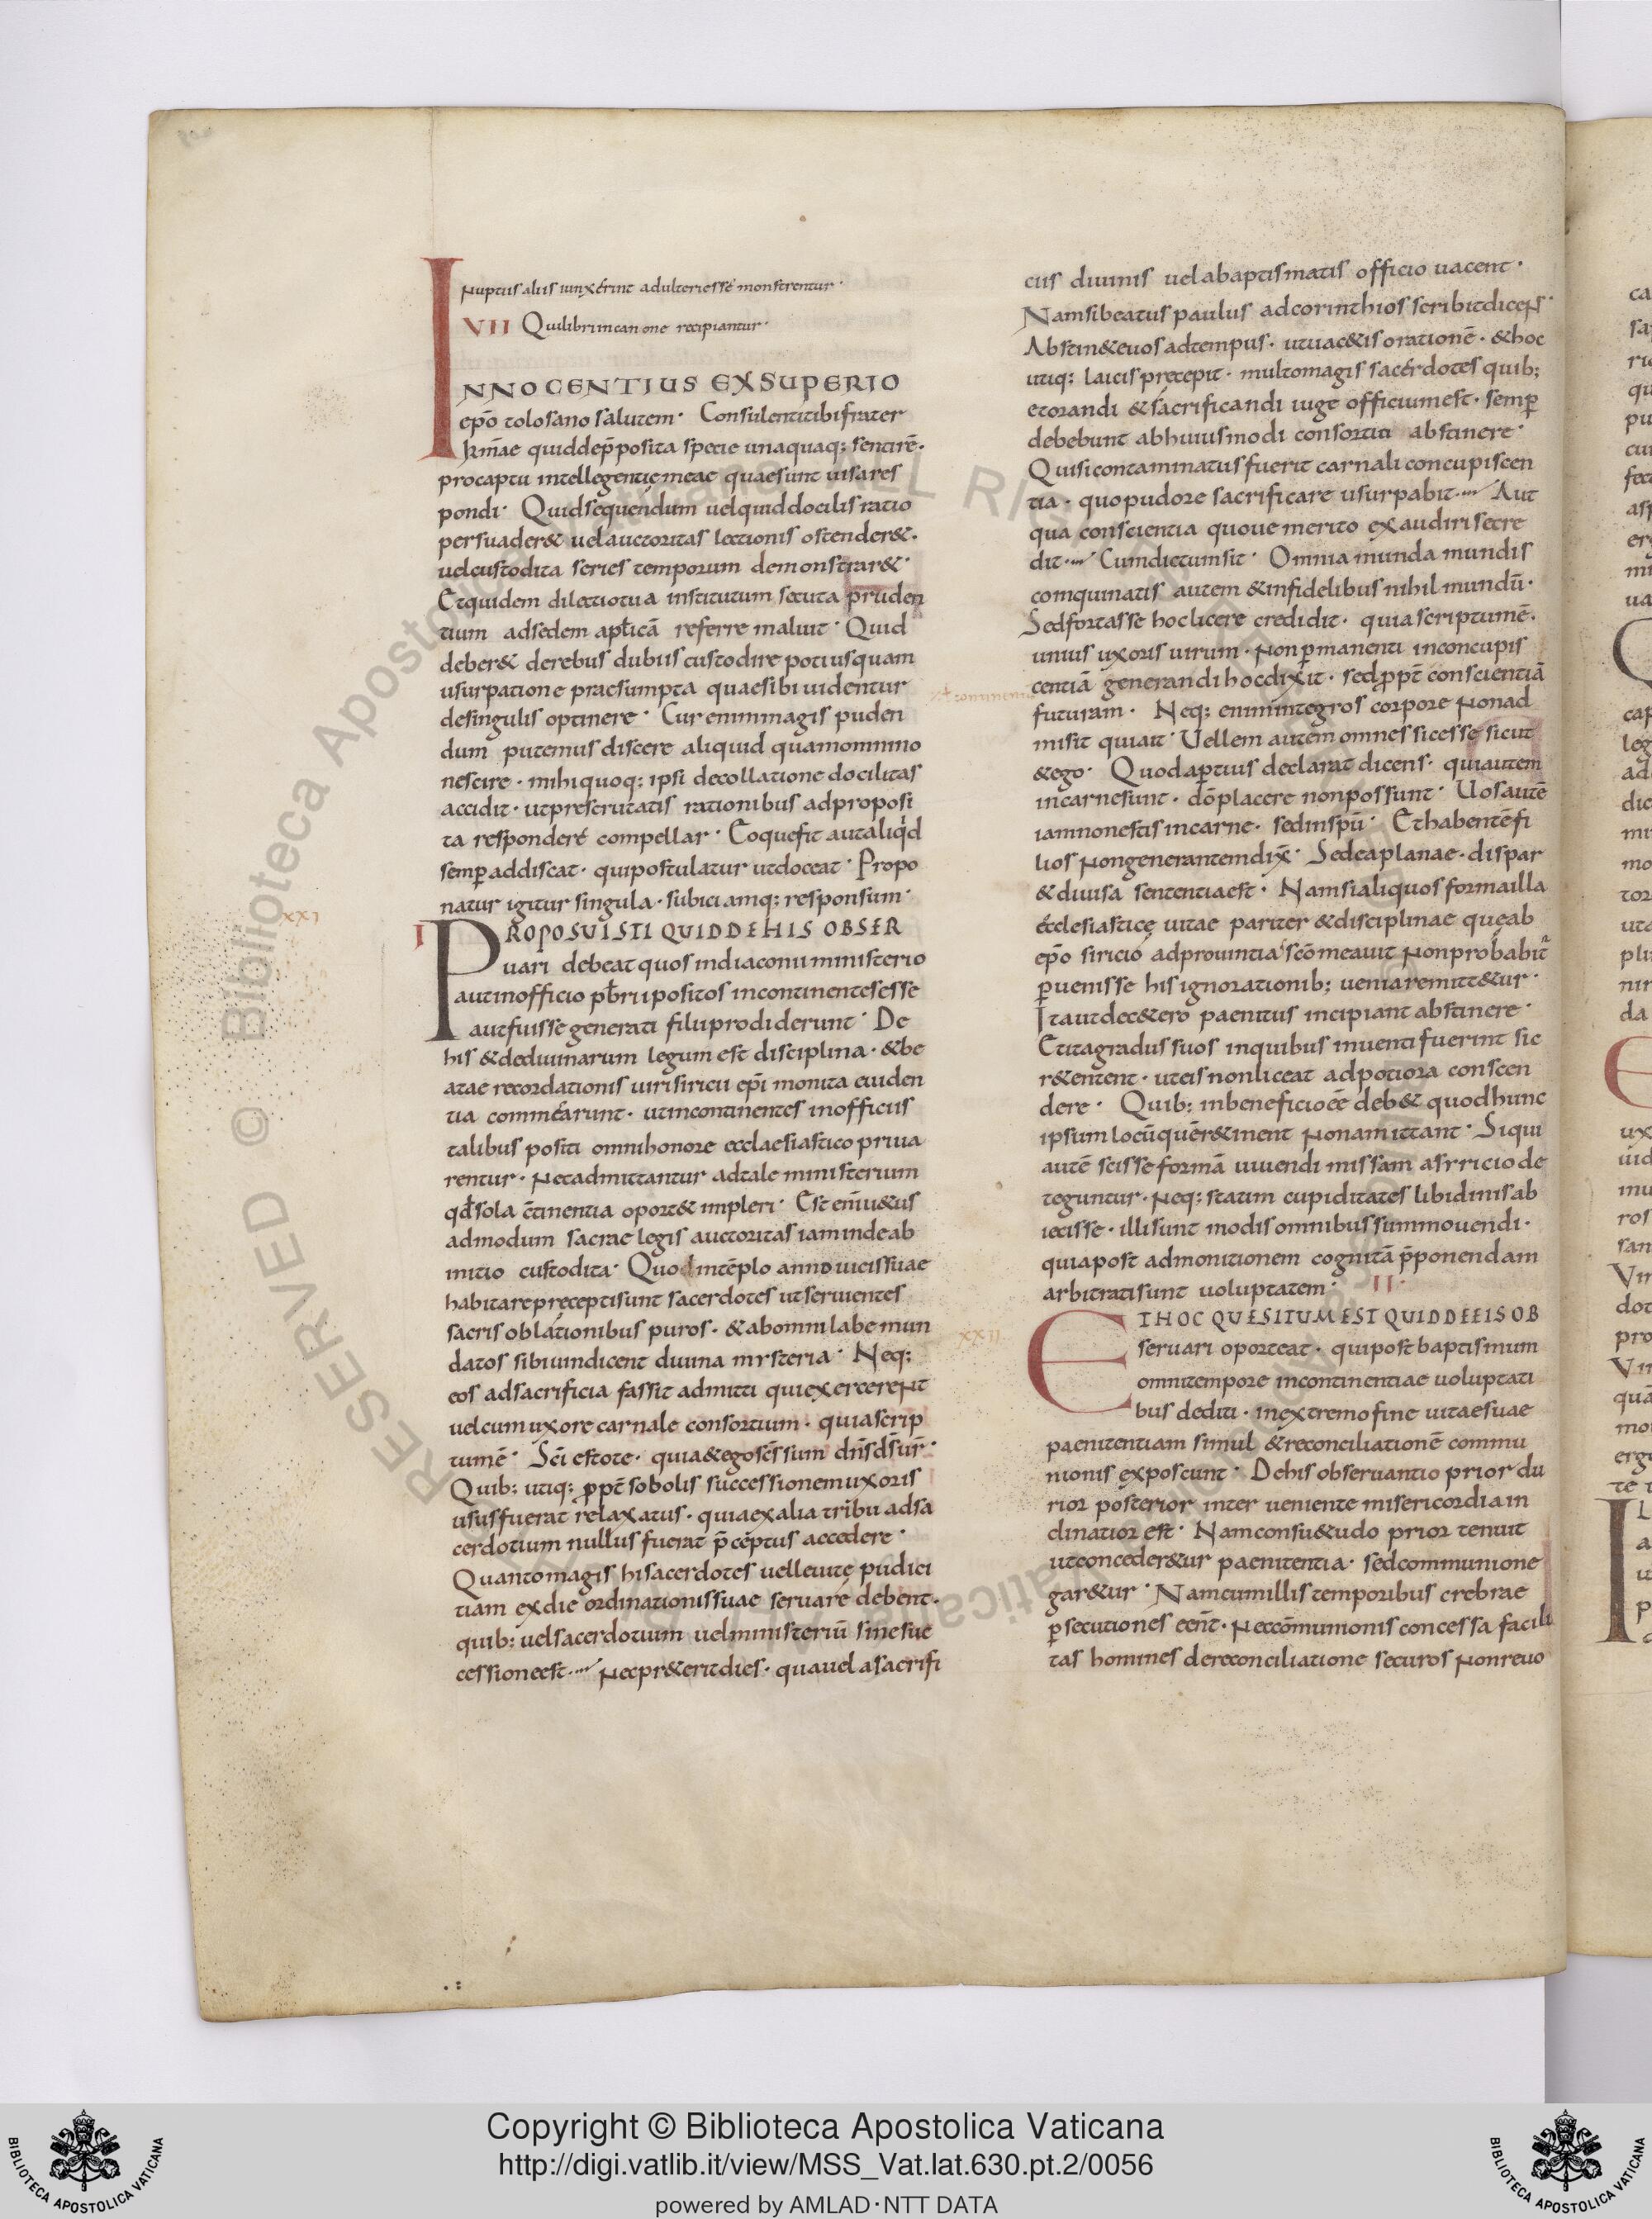 Nuptiis aliis iunxerint adulteri esse monstrentur·
VII Qui libri in canone recipiantur·
INNOCENTIUS EXSUPERIO
ep̄o tolosano salutem· Consulenti tibi frater
k̄r̄mae quid de p̄posita specie unaquaq; sentirē·
pro captu intellegentie meae quae sunt uisa res
pondi· Quid sequendum uel quid docilis ratio
persuader& uel auctoritas lectionis ostender&·
uel custodita series temporum demonstrar&·
Et quidem dilectio tua institutum secuta pruden
tium ad sedem apt̄icā referre maluit· Quid
deber& de rebus dubiis custodire potius quam
usurpatione praesumpta quae sibi uidentur
de singulis optinere· Cur enim magis puden
dum putemus discere aliquid quam omnino
nescire· mihi quoq; ipsi de collatione docilitas
accidit· ut prescrutatis rationibus ad proposi
ta respondere compellar· Eoque fit aut aliq́d
semp̄ addiscat· qui postulatur ut doceat· Propo
natur igitur singula· subiciamq; responsum·
XXI
I PROPOSUISTI QUID DE HIS OBSER
uari debeat quos in diaconii ministerio
aut in officio pb̄rii positos incontinentes esse
aut fuisse generati filii prodiderunt· De
his & de diuinarum legum est disciplina· & be
atae recordationis uiri siricii ep̄i monita euiden
tia commearunt· ut incontinentes in officiis
talibus positi omni honore ecclaesiastico priua
rentur· Nec admittantur ad tale ministerium
qd̄ sola c̄tinentia oport& impleri· Est eni u&us
admodum sacrae legis auctoritas iam inde ab
initio custodita· Quod in tēplo anno uicis suae
habitare precepti sunt sacerdotes ut seruientes
sacris oblationibus puros· & ab omni labe mun
datos sibi uindicent diuina mysteria· Neq;
eos ad sacrificia fas sit admitti qui exercerent
uel cum uxore carnale consortium· quia scrip
tum ē· Sc̄i estote· quia & ego sc̄s sum dn̄s d̄s ūr̄·
Quib; utiq; p̄pt̄ sobolis successionem uxoris
usus fuerat relaxatus· quia ex alia tribu ad sa
cerdotium nullus fuerat p̄ceptus accedere·
Quanto magis hi sacerdotes uel leuite pudici
tiam ex die ordinationis suae seruare debent·
quib; uel sacerdotium uel ministeriū sine suc
cessione est· Nec pr&erit dies· qua uel a sacrifi
ciis diuinis uel a baptismatis officio uacent·
Nam si beatus paulus ad corinthios scribit dicens·
Abstin&e uos ad tempus· ut uac&is orationē· & hoc
utiq; laicis precepit· multo magis sacerdotes quib;
et orandi & sacrificandi iuge officium est· semp̄
debebunt ab huiusmodi consortiti abstinere·
Qui si contaminatus fuerit carnali concupiscen
tia· quo pudore sacrificare usurpabit· Aut
qua conscientia quoue merito exaudiri se cre
dit· Cum dictum sit· Omnia munda mundis
comquinatis autem & infidelibus nihil mundū·
Sed fortasse hoc licere credidit· quia scriptum ē·
unius uxoris uirum· Non p̄manenti in concupis
centiā generandi hoc dixit· sed p̄pt̄ conscientiā
futuram· Neq; enim integros corpore non ad
misit qui ait· Uellem autem omnes sic esse sicut
& ego· Quod ap̄tius declarat dicens· qui autem
in carne sunt· dō placere non possunt· Uos autē
iam non estis in carne· sed in sp̄ū· Et habentē fi
lios Non generantem dix̄· Sed ea plana e· dispar
& diuisa sententia est· Nam si aliquos forma illa
ecclesiastice uitae pariter & disciplinae que ab
ep̄o siricio ad prouintia scō meauit Non probabit̄
p̄uenisse his ignorationib; uenia remitt&ur·
Ita ut de c&ero paenitus incipiant abstinere·
Et ita gradus suos in quibus inuenti fuerint sic
r&entent· ut eis non liceat ad potiora conscen
dere· Quib; in beneficio c̄e deb& quod hunc
ipsum locū quēr&inent Non amittant· Si qui
autē scisse formā uiuendi missam a syricio de
teguntur· Neq; statim cupiditates libidinis ab
iecisse· illi sunt modis omnibus summouendi·
quia post admonitionem cognitā p̄ponendam
arbitrati sunt uoluptatem· II·
XXII
ET HOC QUESITUM EST QUID DE EIS OB
seruari oporteat· qui post baptismum
omni tempore incontinentiae uoluptati
bus dediti· in extremo fine uitae suae
paenitentiam simul & reconciliationē commu
nionis exposcunt· De his obseruantio prior du
rior posterior inter ueniente misericordia in
clinatior est· Nam consu&udo prior tenuit
ut conceder&ur paenitentia· sed communione
gar&ur· Nam cum illis temporibus crebrae
p̄secutiones een̄t· Nec cōmunionis concessa facili
tas homines de reconciliatione securos Non reuo
Copyright © Biblioteca Apostolica Vaticana
http://digi.vatlib.it/view/MSS_Vat.lat.630.pt.2/0056
powered by AMLAD·NTT DATA
BIBLIOTECA APOSTOLICA VATICANA
BIBLIOTECA APOSTOLICA VATICANA